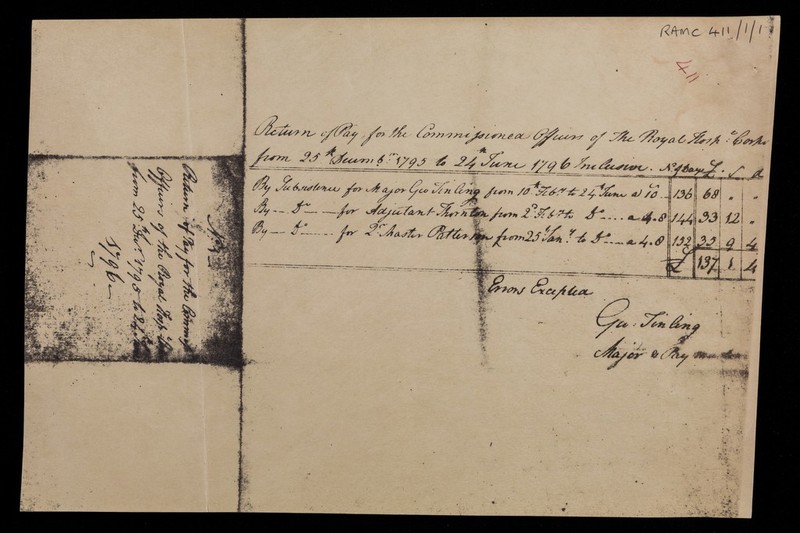 RAMC 411/1/1
411
Return of Pay for the Commissioned Officers of The Royal Hosp.l Corks
from 25th Decemb.r 1795 to 24th June 1796 Inclusive. No of Days £ . S . d
By Subsistence for Major Geo Tinling from 10th Feb.ry to 24th June a 10 136 68 " "
By — Do — for Adjutant Thornton from 2d Feb.ry to Do a 4.8 144 33 12 "
By — Do — for Qr Master Patterson from 25 Jan.y to Do a 4.8 152 35 9 4
£ 137 1 4
Errors Excepted
Geo. Tinling
Major & Pay master
No
Return of Pay for the Commis
Officers of the Royal Hosp
from 25 Decr 1795 to 24 June
1796